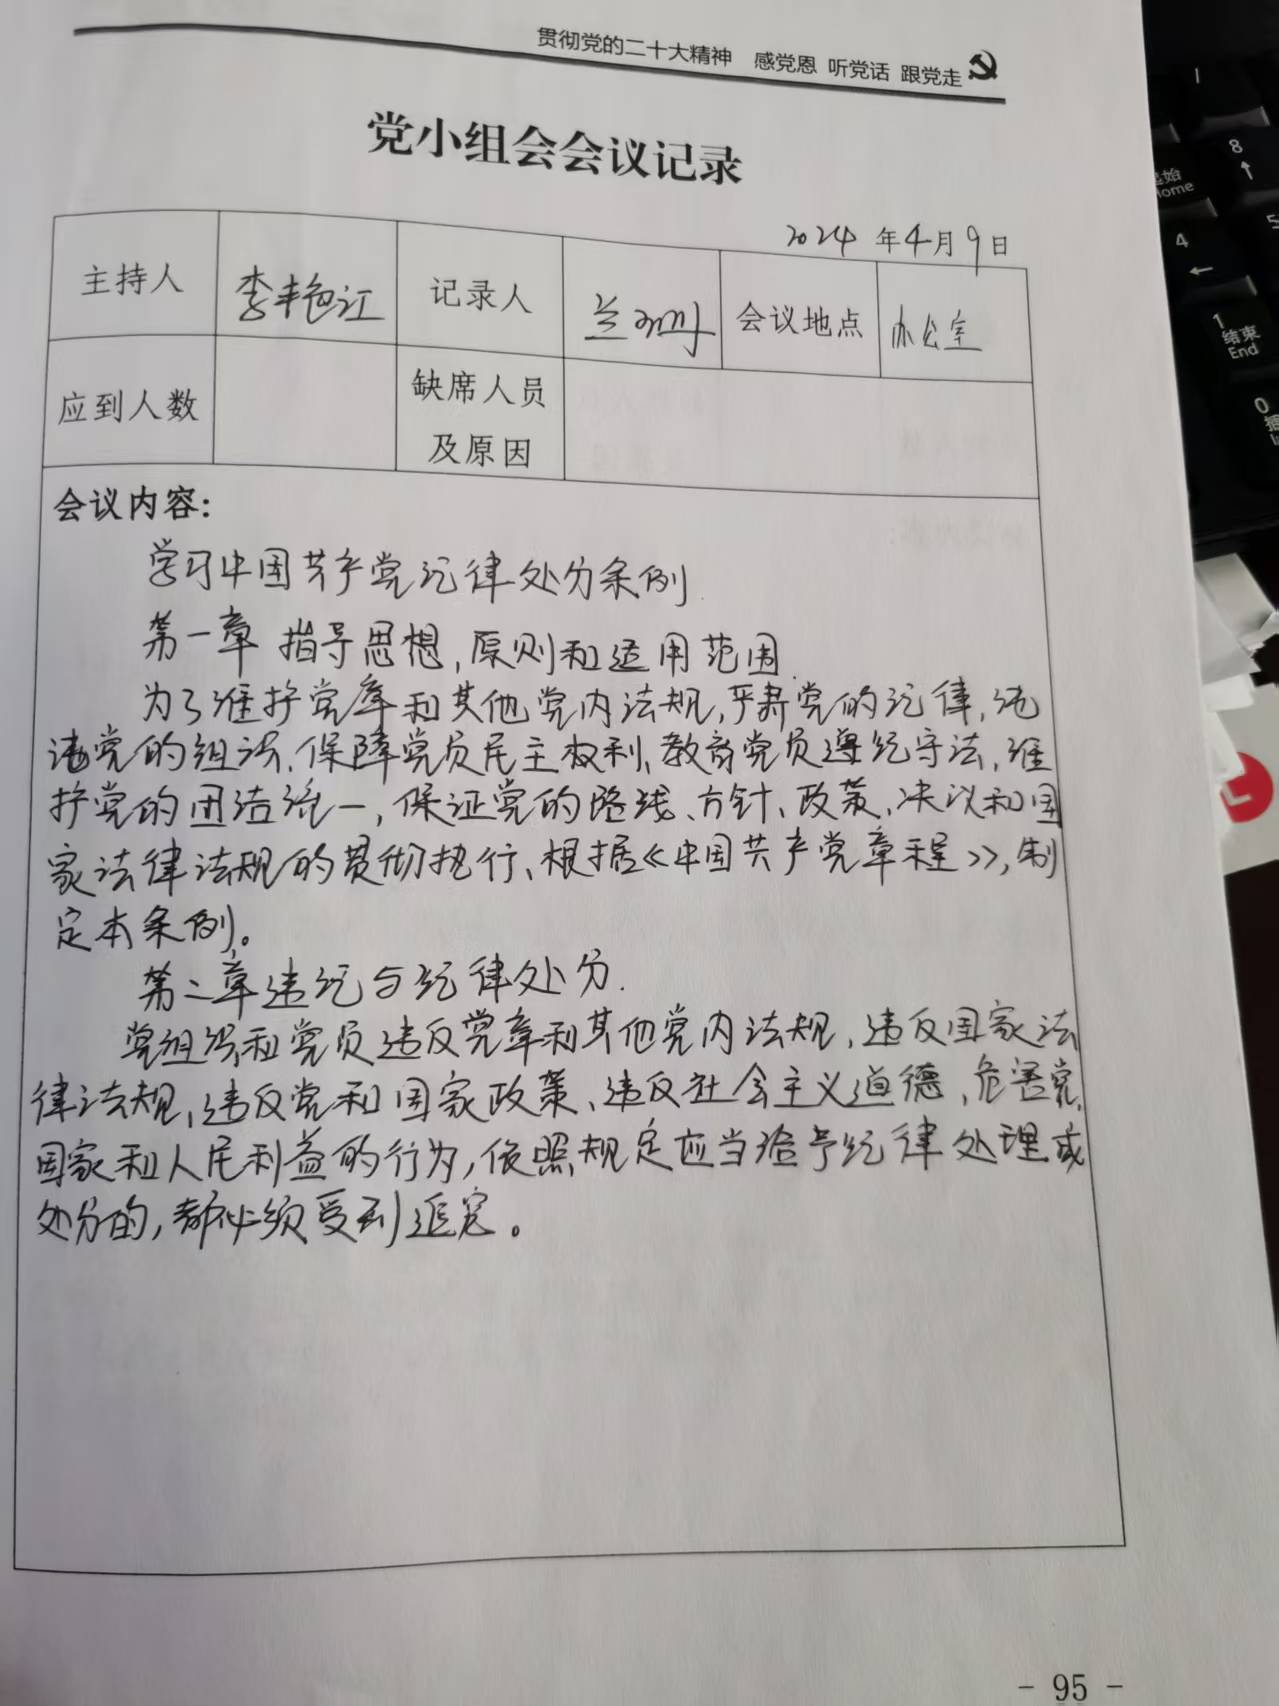 贯彻党的二十大精神 感党恩 听党话 跟党走
党小组会会议记录
2024年4月9日
主持人 李丰艳江 记录人 会议地点 办公室
应到人数 缺席人员及原因
会议内容:
学习中国共产党纪律处分条例
第一章 指导思想,原则和适用范围
为了维护党章和其他党内法规,严肃党的纪律,纯
洁党的组织、保障党员民主权利、教育党员遵纪守法,维
护党的团结统一,保证党的路线、方针、政策、决议和国
家法律法规的贯彻执行、根据《中国共产党章程》,制
定本条例。
第二章违纪与纪律处分.
党组织和党员违反党章和其他党内法规,违反国家法
律法规,违反党和国家政策、违反社会主义道德,危害党、
国家和人民利益的行为,依照规定应当给予纪律处理或
处分的,都必须受到追究。
起始
Home
8
↑
4
←
5
1
结束
End
0
- 95 -